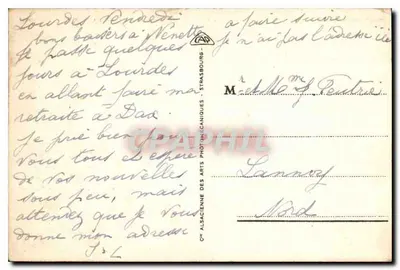 Lourdes Vendredi
bons baisers à Venette
Je passe quelques
jours à Lourdes
en allant faire ma
retraite à Dax
Je prie bien pour
Vous tous J'espère
de vos nouvelles
sous peu, mais
attendez que je Vous
donne mon adresse
J. L
CAP
Cie ALSACIENNE DES ARTS PHOTOMÉCANIQUES - STRASBOURG
a faire suivre
je n'ai pas l'adresse
Mr & Mme
Lannoy
Nord
CPAPHIL